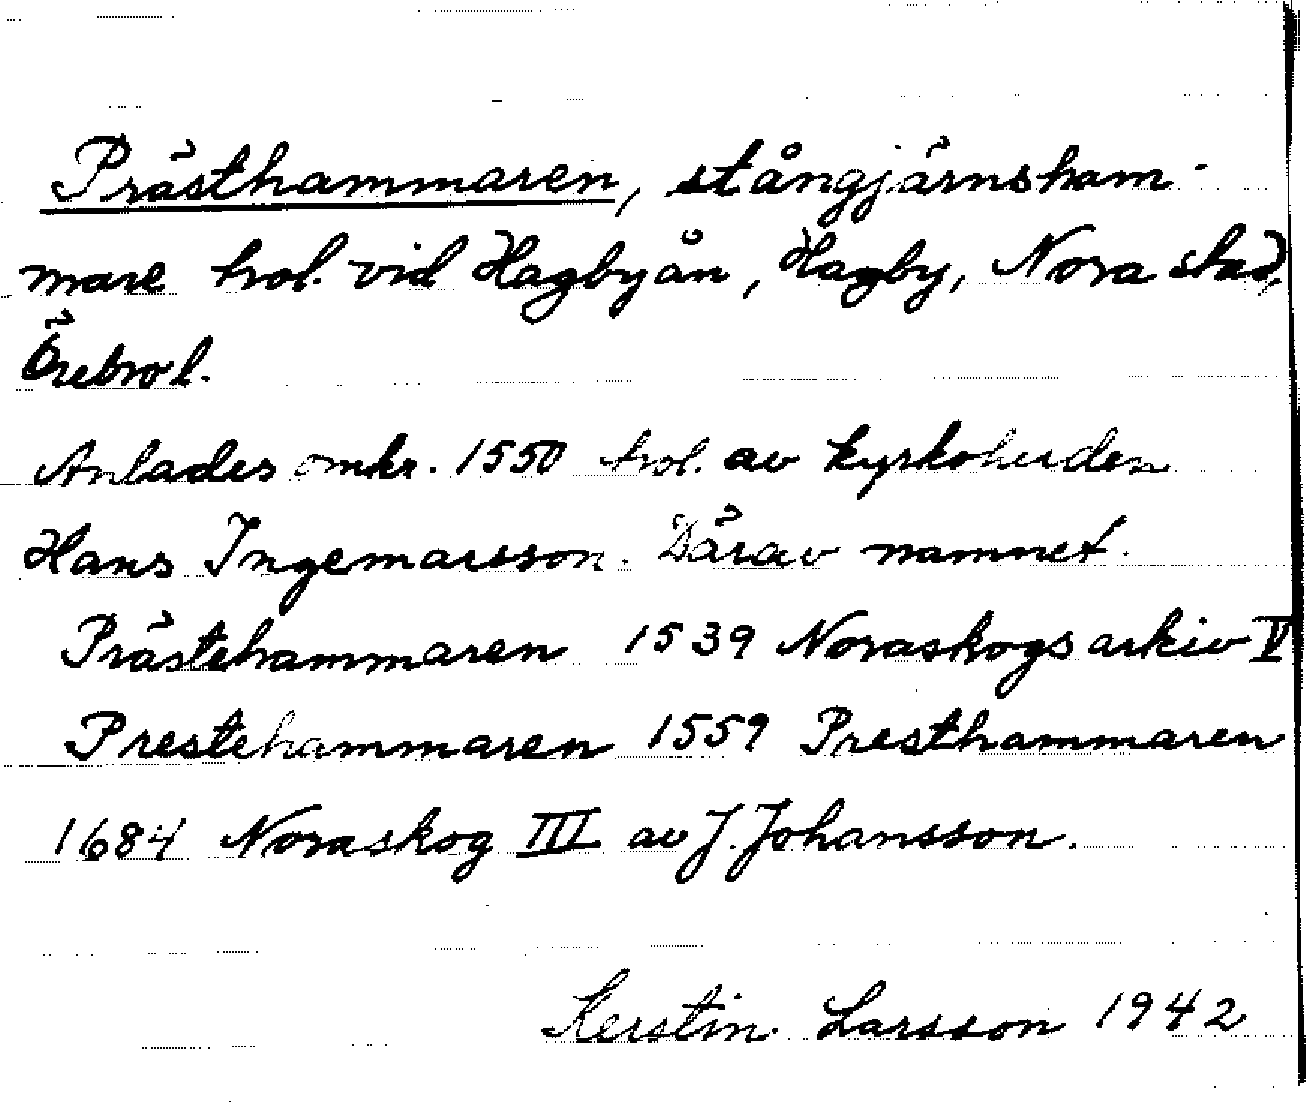 Prästhammaren, stångjärnsham-
mare trol. vid Hagbyån, Hagby, Nora stad,
Örebro l.
Anlades omkr. 1550 trol. av kyrkoherden
Hans Ingemarsson. Därav namnet.
Prästehammaren 1539 Noraskogs arkiv V
Prestehammaren 1559 Presthammaren
1684 Noraskog III av J. Johansson.
Kerstin Larsson 1942